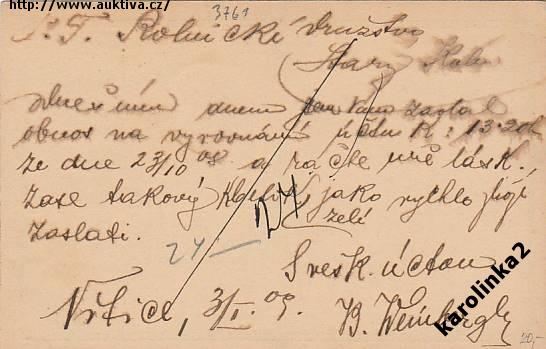 http://www.auktiva.cz/
3761
P. T. Rolnické družstvo
Starý
Dnešním dnem jsem Vám zaslal
obnos na vyrovnání účtu K: 13.20h
ze dne 23/10 08 a račte mě lásk.
zase takový jako rychlo
zelí
zaslati.
24 —
24
S vesk. úctou
Votice, 3/I. 09.
B. Weinberg
karolinka2
20,-